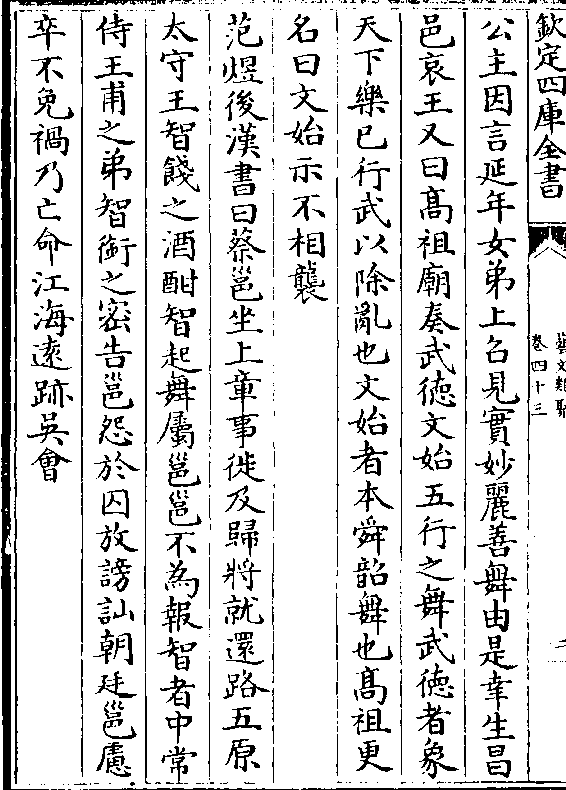 欽定四庫全書
藝文類聚
卷四十三
二
公主因言延年女弟上召見實妙麗善舞由是幸生昌
邑哀王又曰髙祖廟奏武徳文始五行之舞武徳者象
天下樂已行武以除亂也文始者本舜韶舞也髙祖更
名曰文始示不相襲
范煜後漢書曰蔡邕坐上章事徙及歸將就還路五原
太守王智餞之酒酣智起舞屬邕邕不為報智者中常
侍王甫之弟智銜之密告邕怨於囚放謗訕朝廷邕慮
卒不免禍乃亡命江海逺跡吳會